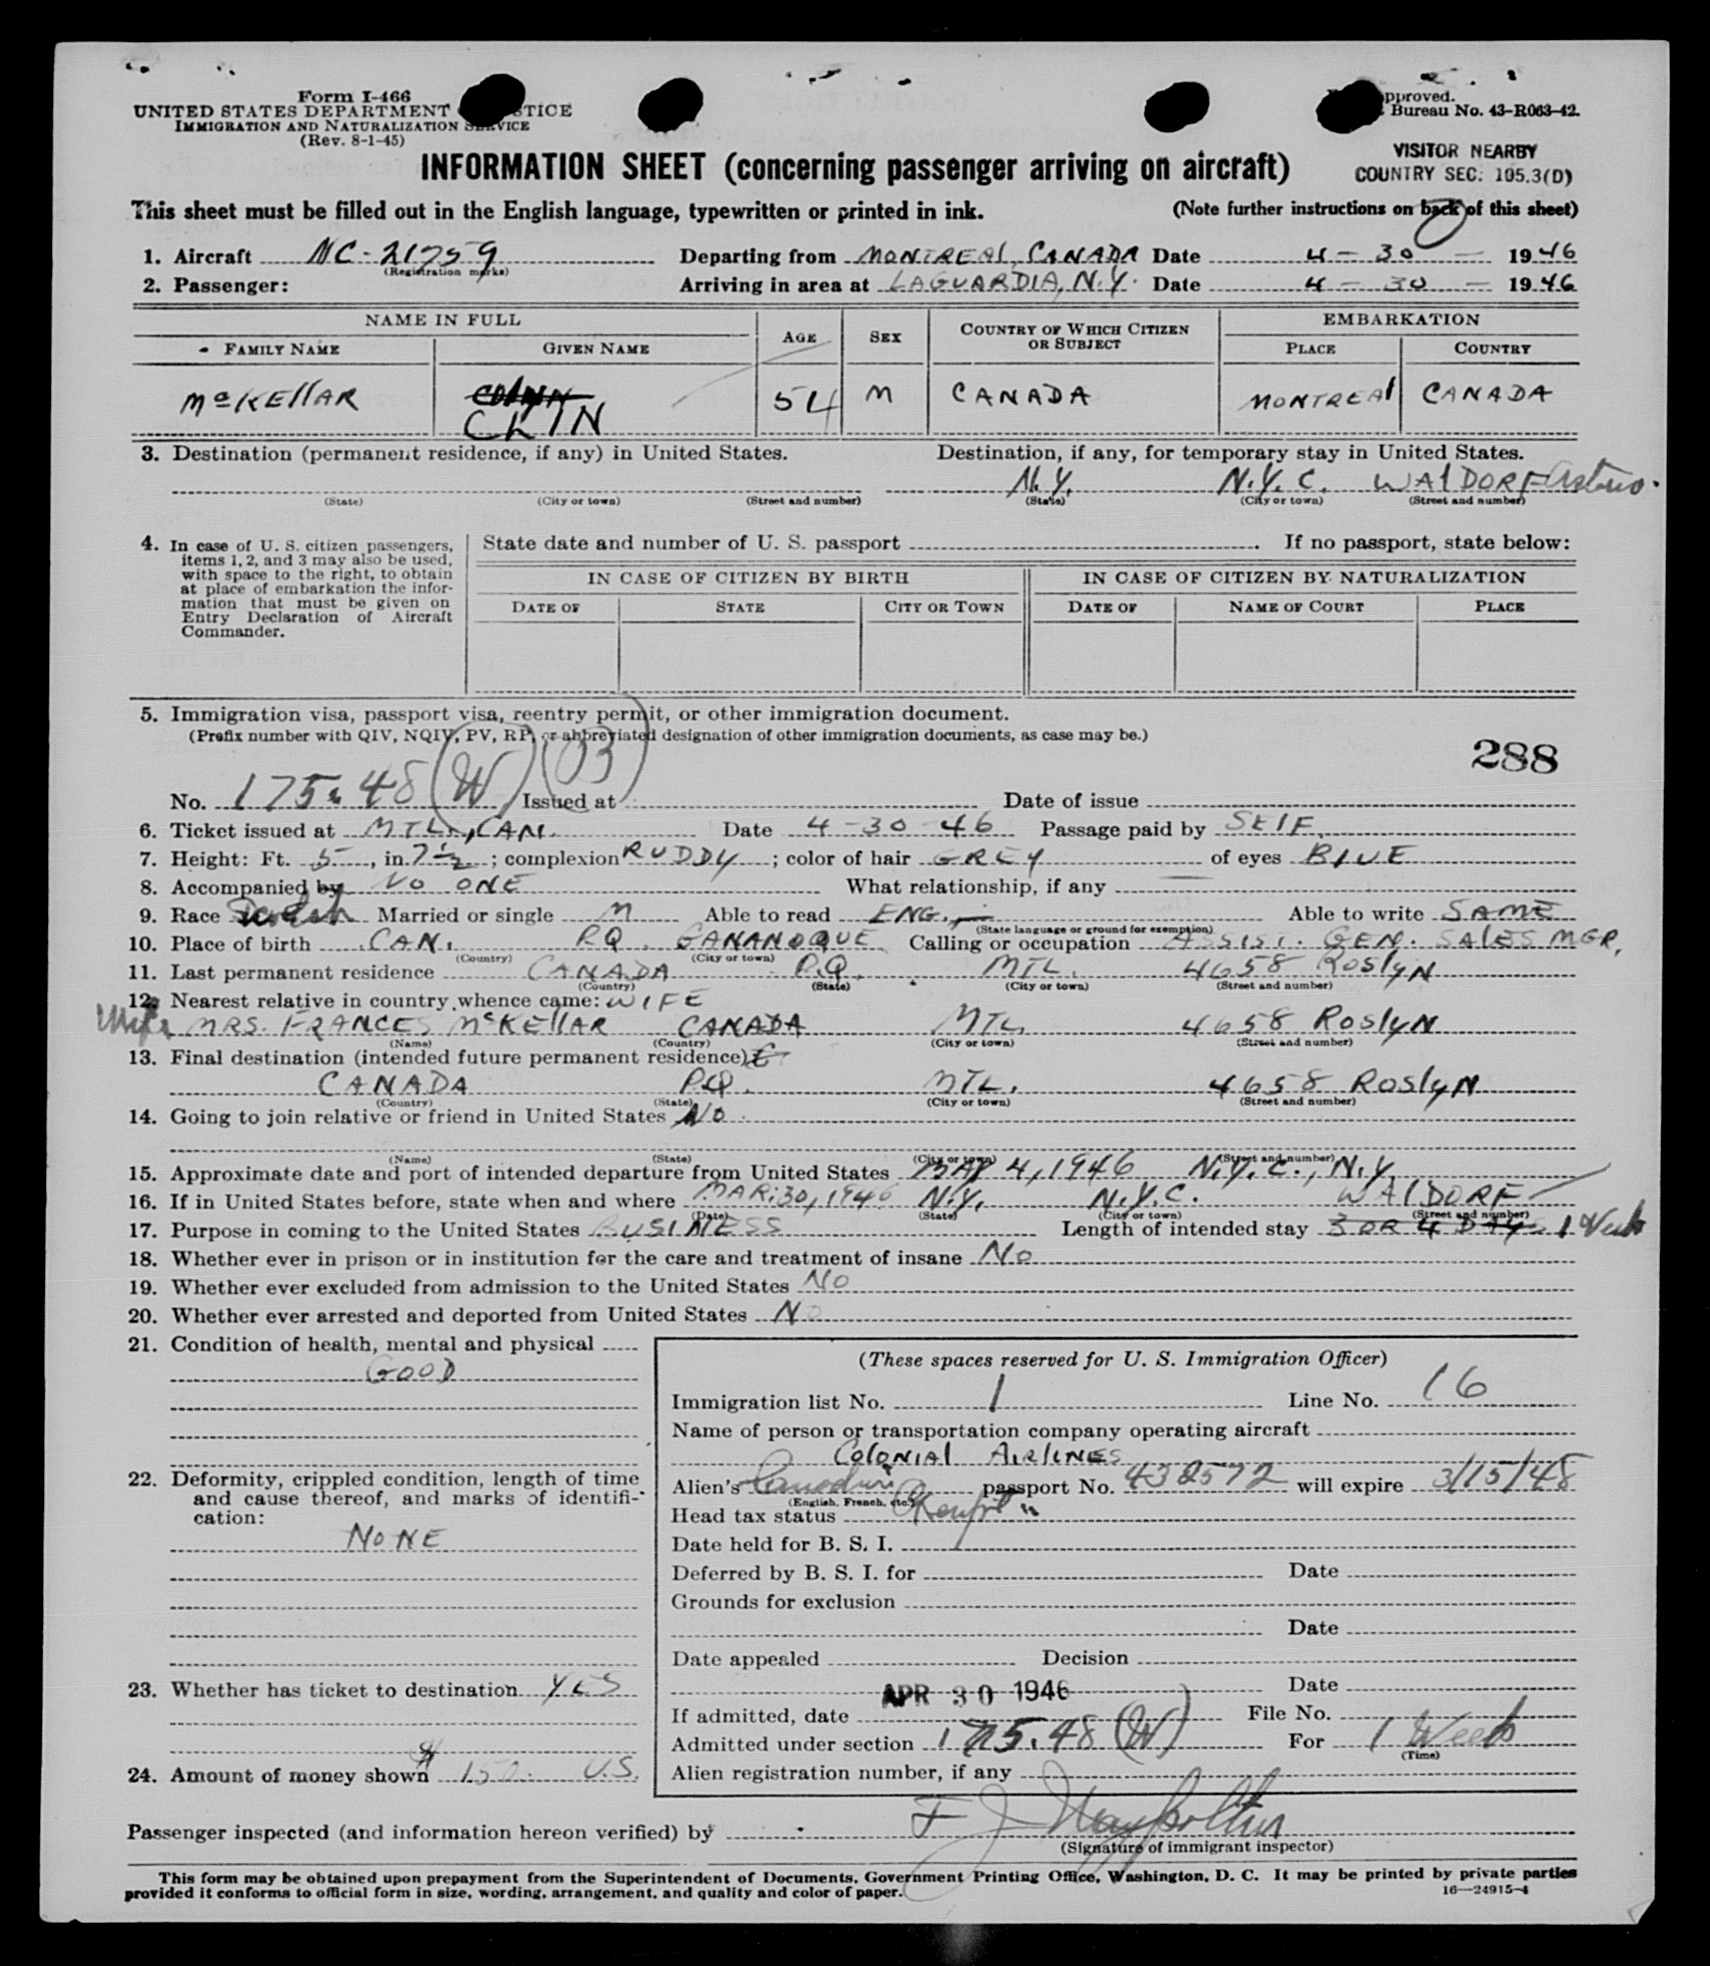 Form I-466
UNITED STATES DEPARTMENT TICE
IMMIGRATION AND NATURALIZATION SERVICE
(Rev. 8-1-45)
pproved.
Bureau No. 43-R063-42.
INFORMATION SHEET (concerning passenger arriving on aircraft)
VISITOR NEARBY
COUNTRY SEC. 105.3(D)
This sheet must be filled out in the English language, typewritten or printed in ink. (Note further instructions on back of this sheet)
1. Aircraft NC-21759 Departing from MONTREAL, CANADA Date 4-30- 1946
(Registration marks)
2. Passenger: Arriving in area at LAGUARDIA, N.Y. Date 4-30- 1946
NAME IN FULL AGE SEX COUNTRY OF WHICH CITIZEN OR SUBJECT EMBARKATION
FAMILY NAME GIVEN NAME PLACE COUNTRY
McKEllAR CLIN 54 M CANADA MONTREAl CANADA
3. Destination (permanent residence, if any) in United States. Destination, if any, for temporary stay in United States.
N.Y. N.Y.C. WAlDORF
(State) (City or town) (Street and number) (State) (City or town) (Street and number)
4. In case of U. S. citizen passengers, items 1, 2, and 3 may also be used, with space to the right, to obtain at place of embarkation the information that must be given on Entry Declaration of Aircraft Commander.
State date and number of U. S. passport . If no passport, state below:
IN CASE OF CITIZEN BY BIRTH IN CASE OF CITIZEN BY NATURALIZATION
DATE OF STATE CITY OR TOWN DATE OF NAME OF COURT PLACE
5. Immigration visa, passport visa, reentry permit, or other immigration document.
(Prefix number with QIV, NQIV, PV, RP, or abbreviated designation of other immigration documents, as case may be.)
288
No. 175.48 (W) (B) Issued at Date of issue
6. Ticket issued at MTL., CAN. Date 4-30-46 Passage paid by SElF.
7. Height: Ft. 5, in. 7½; complexion RUDDY; color of hair GREY of eyes BlUE
8. Accompanied by NO ONE What relationship, if any
9. Race Married or single M Able to read ENG. Able to write SAME
(State language or ground for exemption)
10. Place of birth CAN. P.Q. GANANOQUE Calling or occupation ASSIST. GEN. SAlES MGR.
(Country) (City or town)
11. Last permanent residence CANADA P.Q. MTL. 4658 ROSlyN
(Country) (State) (City or town) (Street and number)
12. Nearest relative in country whence came: WIFE
Wife MRS. FRANCES McKEllAR CANADA MTL. 4658 ROSlyN
(Name) (Country) (City or town) (Street and number)
13. Final destination (intended future permanent residence)
CANADA P.Q. MTL. 4658 ROSlyN
(Country) (State) (City or town) (Street and number)
14. Going to join relative or friend in United States NO
(Name) (State) (City or town) (Street and number)
15. Approximate date and port of intended departure from United States MAY 4, 1946 N.Y.C., N.Y.
16. If in United States before, state when and where MAR. 30, 1946 N.Y. N.Y.C. WAlDORF
(Date) (State) (City or town) (Street and number)
17. Purpose in coming to the United States BUSINESS Length of intended stay 3 OR 4 DAYS 1 Week
18. Whether ever in prison or in institution for the care and treatment of insane NO
19. Whether ever excluded from admission to the United States NO
20. Whether ever arrested and deported from United States NO
21. Condition of health, mental and physical
GOOD
22. Deformity, crippled condition, length of time and cause thereof, and marks of identification:
NONE
23. Whether has ticket to destination YES
24. Amount of money shown $ 150. U.S.
(These spaces reserved for U. S. Immigration Officer)
Immigration list No. 1 Line No. 16
Name of person or transportation company operating aircraft
COlONIAl AIRlINES
Alien's Canadian passport No. 432572 will expire 3/15/48
(English, French, etc.)
Head tax status
Date held for B. S. I.
Deferred by B. S. I. for Date
Grounds for exclusion
Date
Date appealed Decision
Date
APR 30 1946
If admitted, date File No.
Admitted under section 175.48 (W) For 1 Week
(Time)
Alien registration number, if any
Passenger inspected (and information hereon verified) by F J
(Signature of immigrant inspector)
This form may be obtained upon prepayment from the Superintendent of Documents, Government Printing Office, Washington, D. C. It may be printed by private parties
provided it conforms to official form in size, wording, arrangement, and quality and color of paper.
16—24915-4